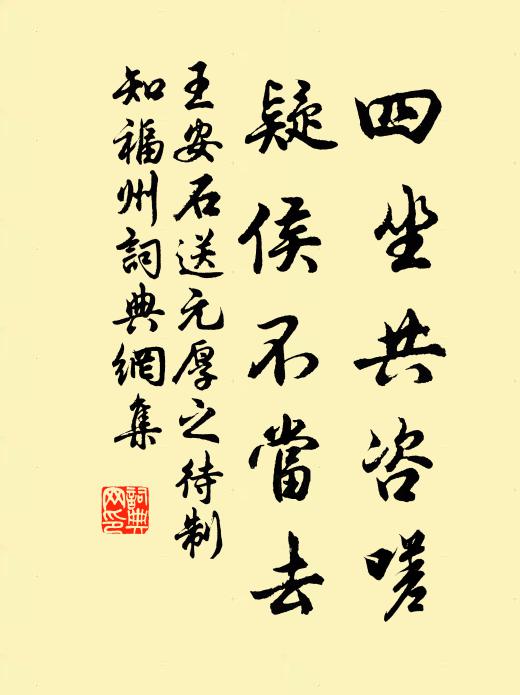 四坐共咨嗟
疑侯不當去
王安石送元厚之待制
知福州詞典網集
詞典網印